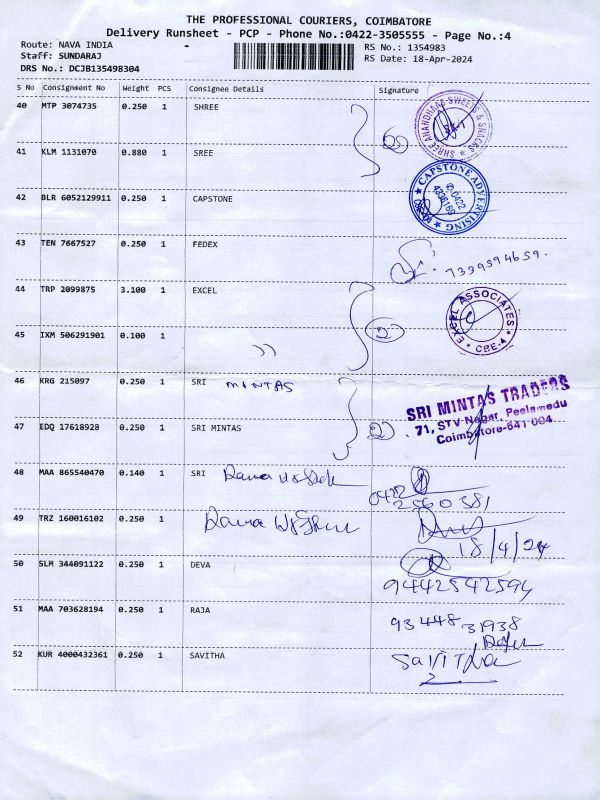 THE PROFESSIONAL COURIERS, COIMBATORE
Delivery Runsheet - PCP - Phone No.:0422-3505555 - Page No.:4
Route: NAVA INDIA RS No.: 1354983
Staff: SUNDARAJ RS Date: 18-Apr-2024
DRS No.: DCJB135498304
S No Consignment No Weight PCS Consignee Details Signature
40 MTP 3074735 0.250 1 SHREE
SHREE ANANDHAAS SWEETS & SNACKS
41 KLM 1131070 0.880 1 SREE
42 BLR 6052129911 0.250 1 CAPSTONE
CAPSTONE ADVERTISING
0422
4336163
43 TEN 7667527 0.250 1 FEDEX
7339594659.
44 TRP 2099875 3.100 1 EXCEL
EXCEL ASSOCIATES
CBE-4
2
45 IXM 506291901 0.100 1
46 KRG 215097 0.250 1 SRI MINTAS
SRI MINTAS TRADERS
71, STV-Nagar, Peelamedu
Coimbatore-641-004.
47 EDQ 17618928 0.250 1 SRI MINTAS 2
48 MAA 865540470 0.140 1 SRI
0422
2560381
49 TRZ 160016102 0.250 1
18/4/24
50 SLM 344091122 0.250 1 DEVA
9442542594
51 MAA 703628194 0.250 1 RAJA
93448 31938
52 KUR 4000432361 0.250 1 SAVITHA Savitha